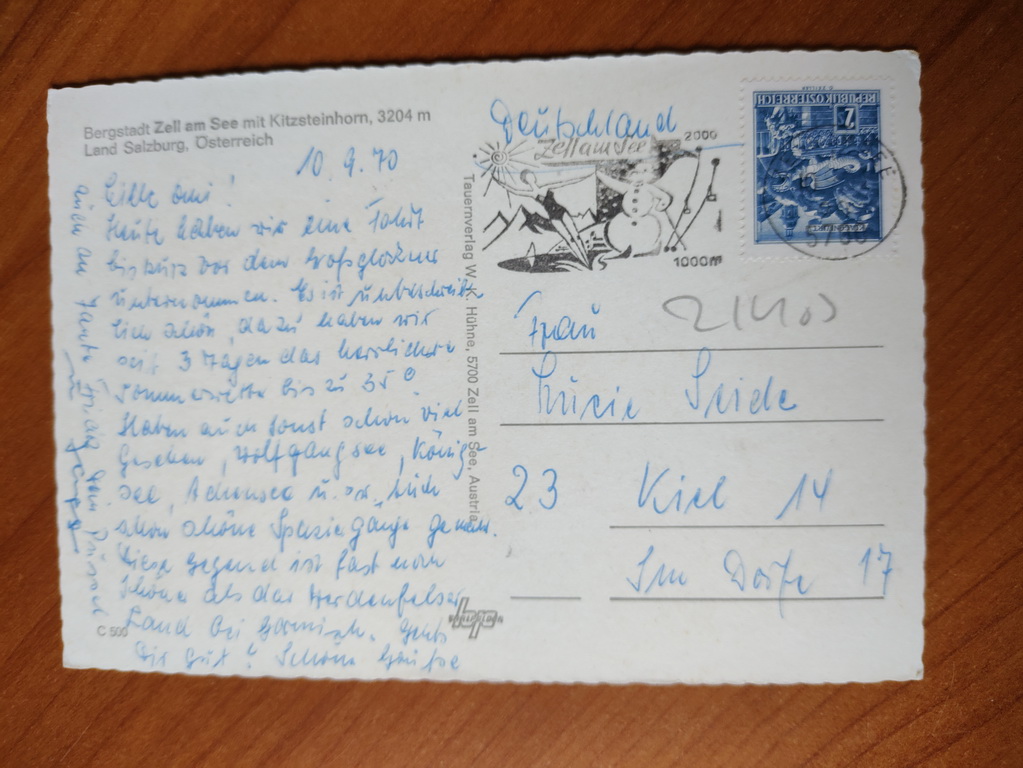 Bergstadt Zell am See mit Kitzsteinhorn, 3204 m
Land Salzburg, Österreich
10.9.70
Liebe Omi!
Heute haben wir eine Fahrt
bis kurz vor dem Großglockner
unternommen. Es ist unbeschreib-
lich schön, dazu haben wir
seit 3 Tagen das herrlichste
Sommerwetter bis zu 35°
Haben auch sonst schon viel
gesehen, Wolfgangsee, Königs-
see, Achensee u.s.w. Auch
schon schöne Spaziergänge gemacht.
Diese Gegend ist fast noch
schöner als das Werdenfelser
Land bei Garmisch. Gehts
Dir gut? Schöne Grüße
auch an Tante Frieda Dein
C 500
Tauernverlag W. K. Hühne, 5700 Zell am See, Austria
Deutschland
Zell am See
2000
1000m
REPUBLIK ÖSTERREICH
2
5700
Frau
Luzie Seide
23 Kiel 14
Im Dorfe 17